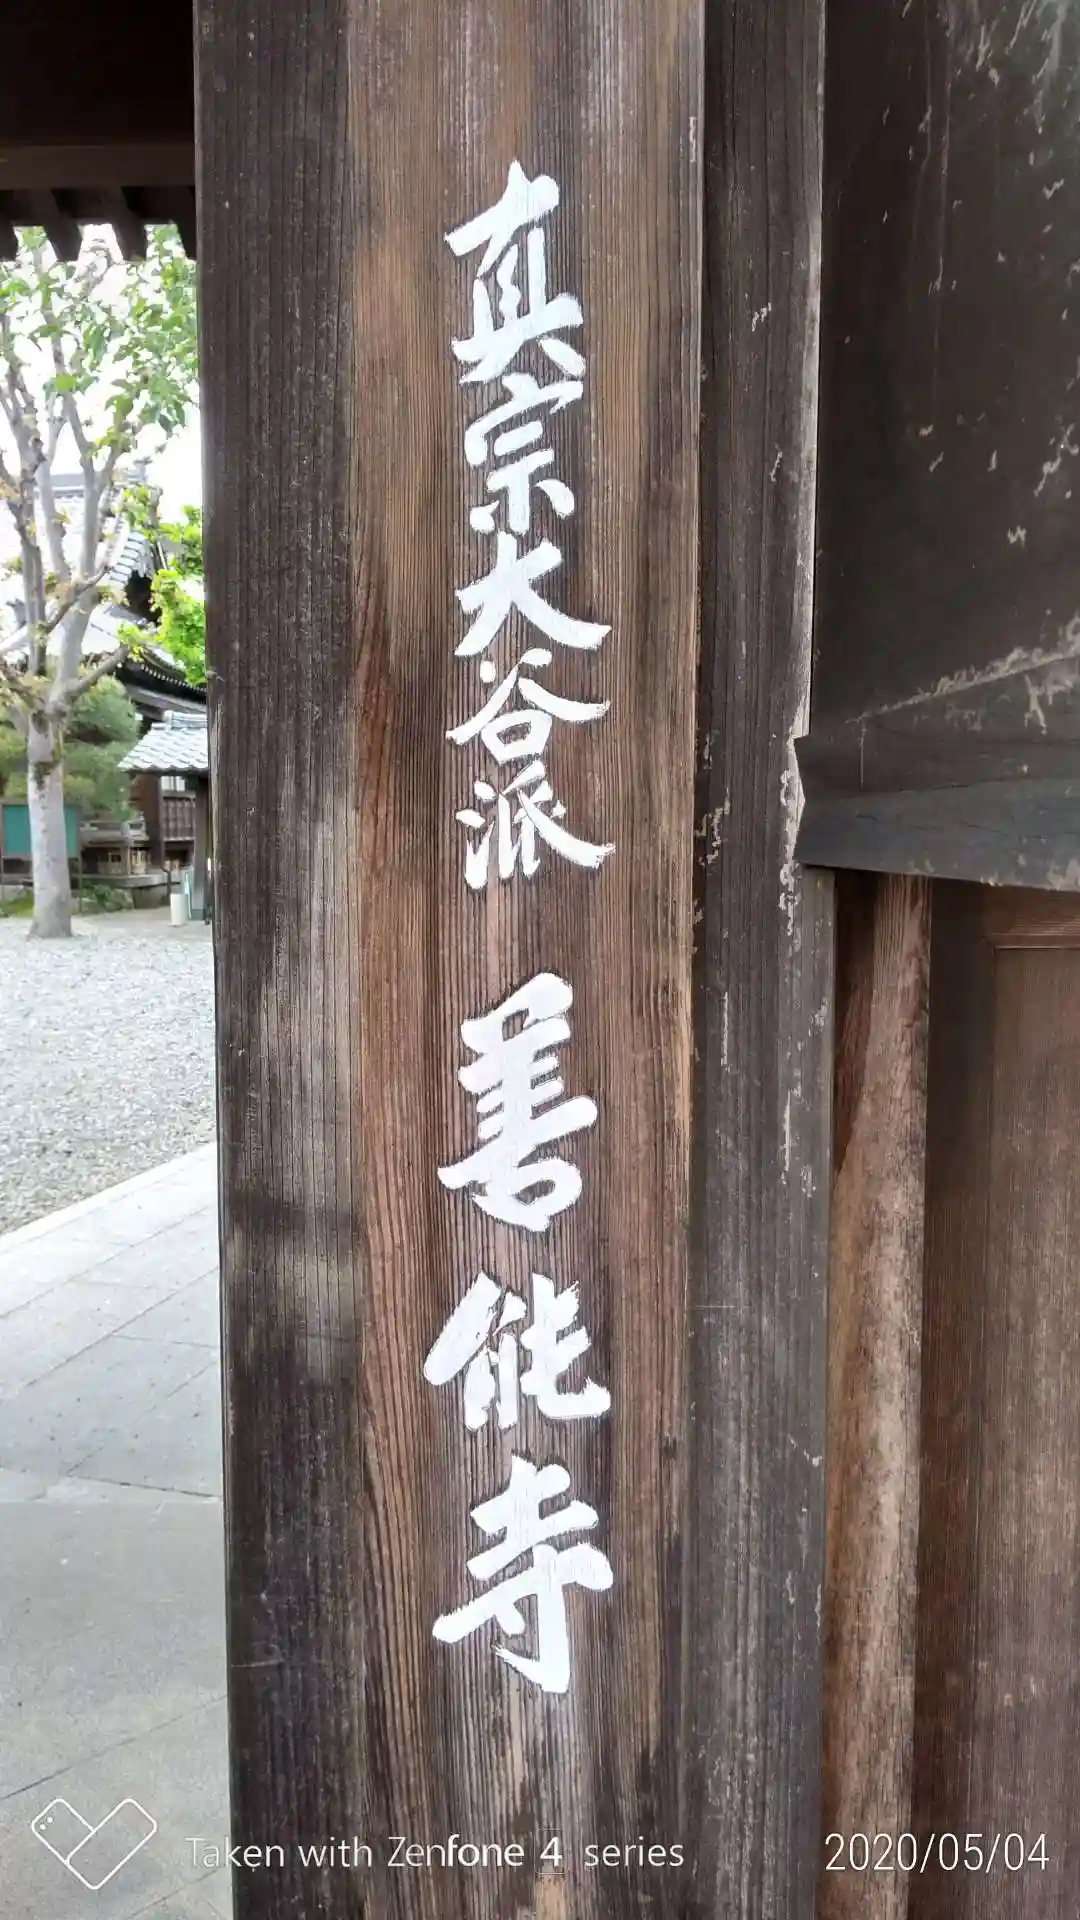 真宗大谷派 善能寺
Taken with Zenfone 4 series
2020/05/04